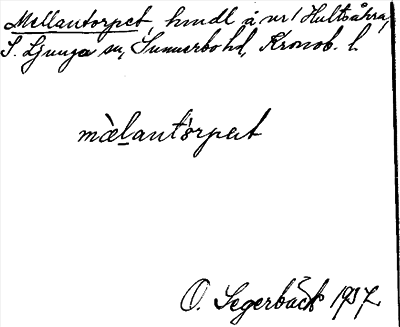 Mellantorpet, hmdl å nr 1 Hultsåhra,
S. Ljunga sn, Sunnerbo hd, Kronob. l.
mèlantórpet
O. Segerbäck 1937.